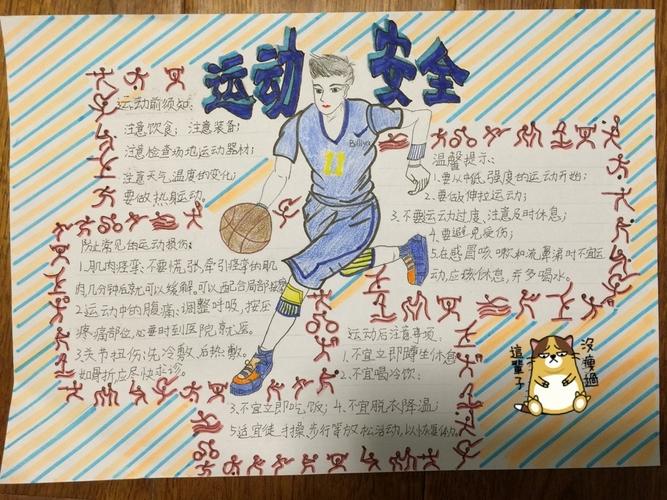 运动安全
运动前须知:
注意饮食; 注意装备;
注意检查场地运动器材;
注意天气,温度的变化;
要做热身运动。
防止常见的运动损伤:
1.肌肉痉挛:不要慌张,牵引痉挛的肌
肉几分钟后就可以缓解,可以配合局部按摩
2.运动中的腹痛:调整呼吸,按压
疼痛部位,必要时到医院就医。
3.关节扭伤:先冷敷后热敷。
如骨折应尽快求诊。
Billiya
11
温馨提示:
1.要从中低强度的运动开始;
2.要做伸拉运动;
3.不要运动过度、注意及时休息;
4.要避免受伤;
5.在感冒咳嗽和流鼻涕时不宜运
动,应该休息,并多喝水。
运动后注意事项:
1.不宜立即蹲坐休息
2.不宜喝冷饮;
3.不宜立即吃饭; 4.不宜脱衣降温;
5.适宜徒手操,步行等放松活动,以恢复体力。
這輩子
沒瘦過